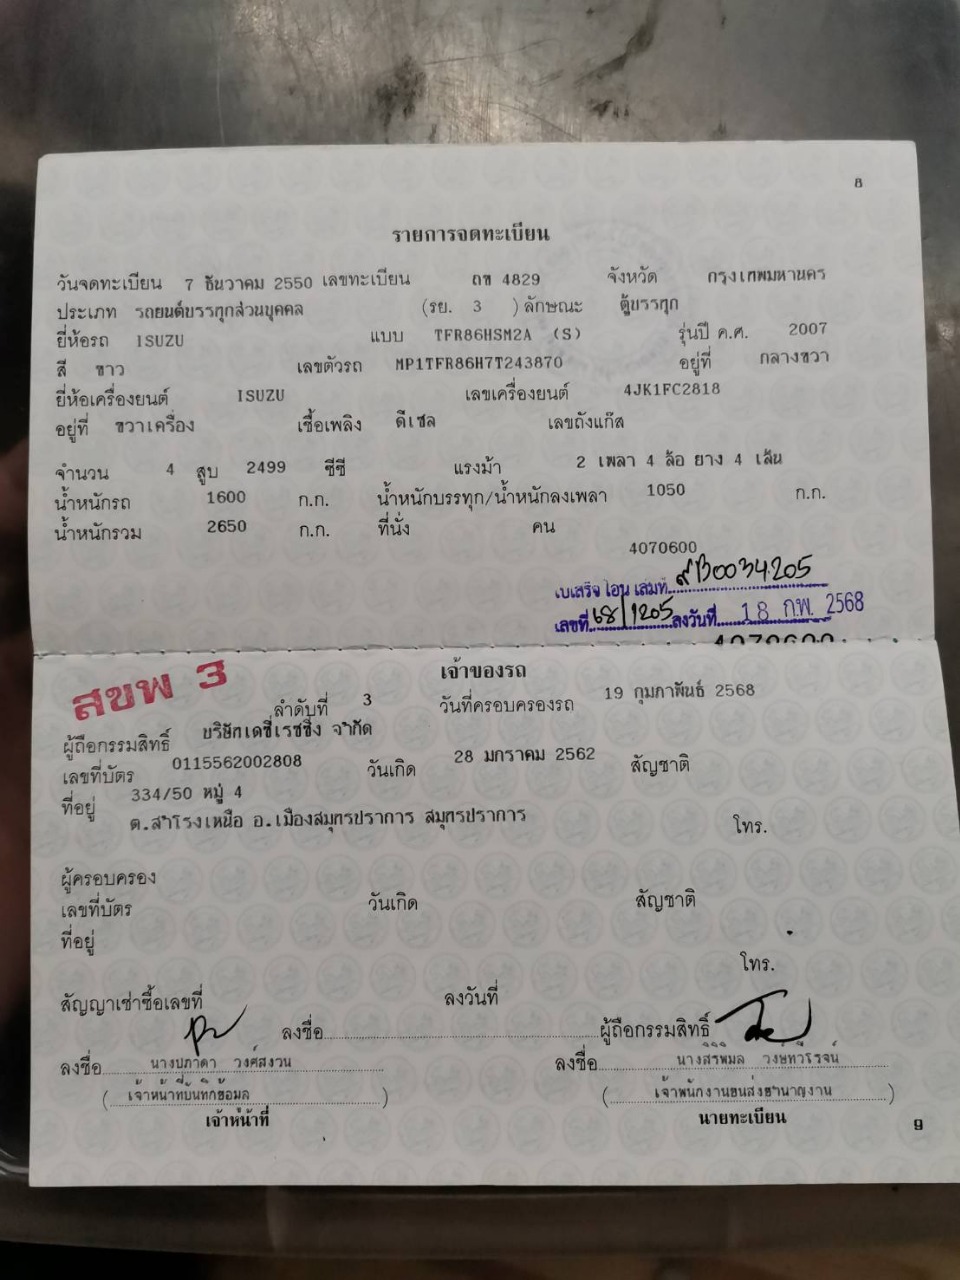 8
รายการจดทะเบียน
วันจดทะเบียน 7 ธันวาคม 2550 เลขทะเบียน ถฃ 4829 จังหวัด กรุงเทพมหานคร
ประเภท รถยนต์บรรทุกส่วนบุคคล (รย. 3 ) ลักษณะ ตู้บรรทุก
ยี่ห้อรถ ISUZU แบบ TFR86HSM2A (S) รุ่นปี ค.ศ. 2007
สี ขาว เลขตัวรถ MP1TFR86H7T243870 อยู่ที่ กลางขวา
ยี่ห้อเครื่องยนต์ ISUZU เลขเครื่องยนต์ 4JK1FC2818
อยู่ที่ ขวาเครื่อง เชื้อเพลิง ดีเซล เลขถังแก๊ส
จำนวน 4 สูบ 2499 ซีซี แรงม้า 2 เพลา 4 ล้อ ยาง 4 เส้น
น้ำหนักรถ 1600 ก.ก. น้ำหนักบรรทุก/น้ำหนักลงเพลา 1050 ก.ก.
น้ำหนักรวม 2650 ก.ก. ที่นั่ง คน
4070600
ใบเสร็จ โอน เล่มที่ 0034205
เลขที่ 68/1205 ลงวันที่ 18 ก.พ. 2568
4070600
สขพ 3
เจ้าของรถ
ลำดับที่ 3 วันที่ครอบครองรถ 19 กุมภาพันธ์ 2568
ผู้ถือกรรมสิทธิ์ บริษัทเดซี่เรซซิ่ง จำกัด
เลขที่บัตร 0115562002808 วันเกิด 28 มกราคม 2562 สัญชาติ
ที่อยู่ 334/50 หมู่ 4
ต.สำโรงเหนือ อ.เมืองสมุทรปราการ สมุทรปราการ โทร.
ผู้ครอบครอง
เลขที่บัตร วันเกิด สัญชาติ
ที่อยู่
โทร.
สัญญาเช่าซื้อเลขที่ ลงวันที่
ลงชื่อ ผู้ถือกรรมสิทธิ์
ลงชื่อ นางปภาดา วงศ์สงวน ลงชื่อ นางสิริพิมล วงษ์ทวีโรจน์
( เจ้าหน้าที่บันทึกข้อมูล ) ( เจ้าพนักงานขนส่งชำนาญงาน )
เจ้าหน้าที่ นายทะเบียน
9